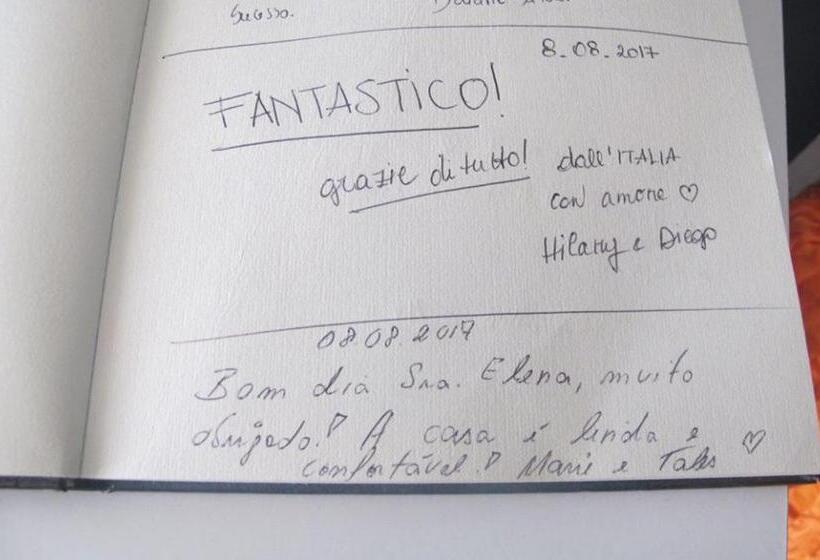 Sucesso.
8.08.2017
FANTASTICO!
grazie di tutto!
dall'ITALIA
con amore ♡
Hilary e Diego
08.08.2017
Bom dia Sra. Elena, muito
obrigado! A casa é linda e ♡
confortável! Marie e